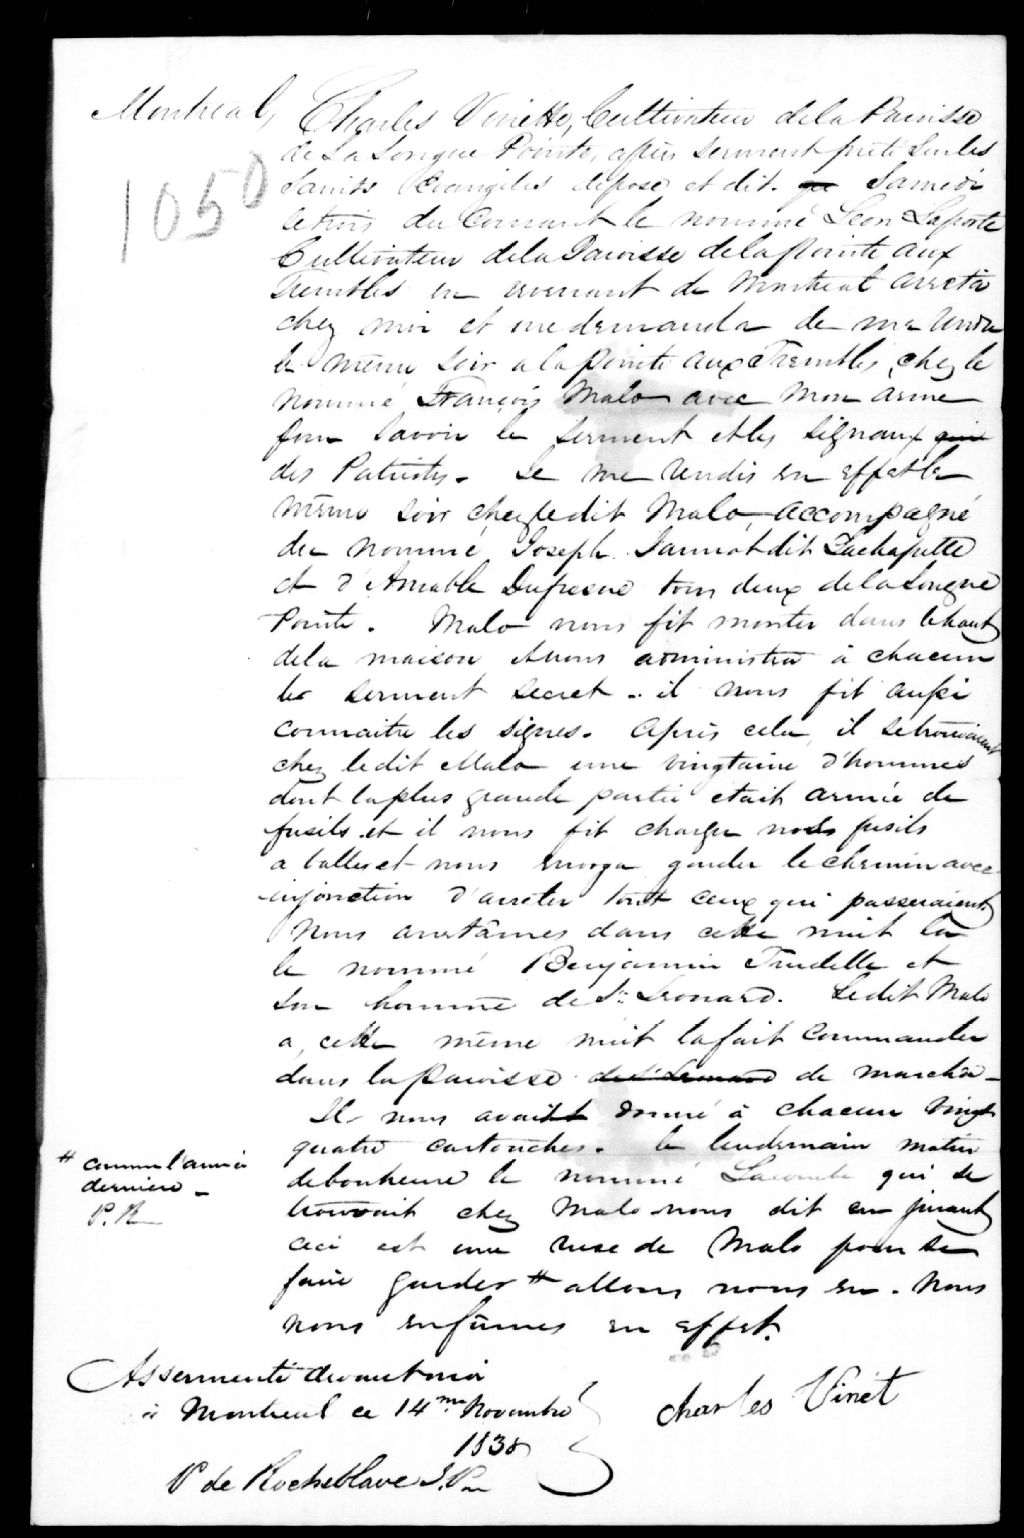 Montreal, Charles Vinette, Cultivateur de la Paroisse
de La Longue Pointe, après serment prété sur les
Saints Evangiles depose et dit. que Samedi
le trois du Courant le nommé Leon Laporte
Cultivateur de la Paroisse de la pointe aux
Trembles en revenant de Montreal arreta
chez moi et me demanda de me rendre
le même soir a la Pointe aux Trembles, chez le
nommé François Malo avec mon arme
pour savoir le serment et les signaux qui
des Patriotes. Je me rendis en effet le
même soir chez le dit Malo, accompagné
du nommé Joseph Jannot dit Lachapelle
et d'Amable Dufresne tous deux de la Longue
Pointe. Malo nous fit monter dans le haut
de la maison et nous administra à chacun
le serment secret.. il nous fit aussi
connaitre les signes. Après cela, il se trouvaient
chez le dit Malo une vingtaine d'hommes
dont la plus grande partie etait armée de
fusils et il nous fit charger nos fusils
a balles et nous envoya garder le chemin avec
injonction d'arreter tout ceux qui passeraient
Nous arretâmes dans cette nuit là
le nommé Benjamin Trudelle et
son homme de St Leonard. Le dit Malo
a cette même nuit la fait commander
dans la paroisse de St Leonard de marcher_
Il nous avait donné à chacun vingt
quatre cartouches. Le lendemain matin
de bonheure le nommé Lacombe qui se
trouvait chez Malo nous dit en jurant
ceci est une ruse de Malo pour se
faire garder # allons nous en. Nous
nous enfûmes en effet.
# comme l'année
derniere_
P. R
1050
Assermenté devant moi
à Montreal ce 14me. Novembre
1838
P de Rocheblave J.P.
Charles Vinét